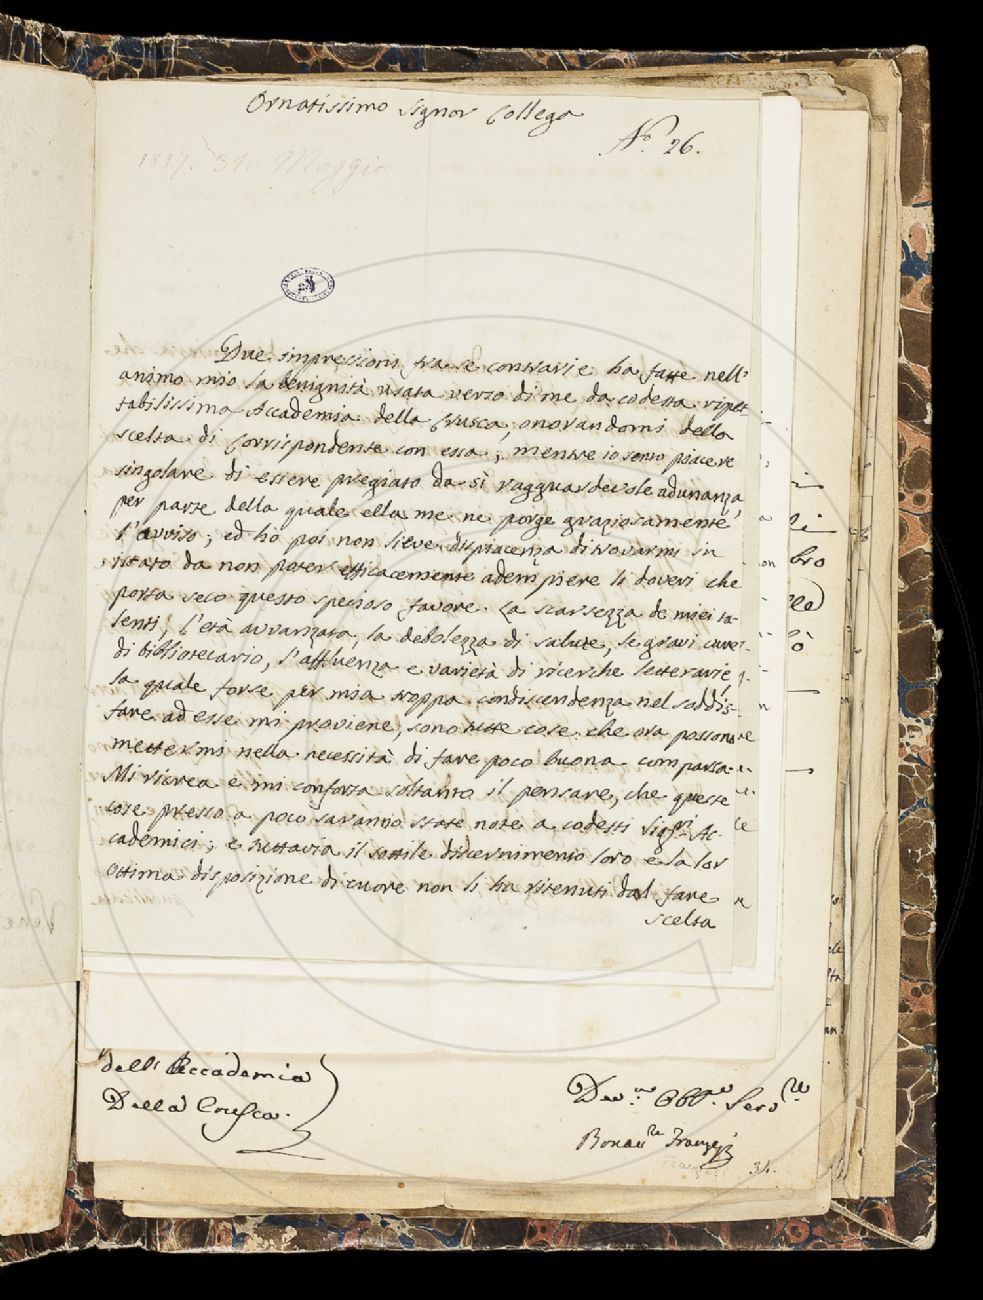 Ornatissimo Signor Collega
N.o 26.
1817. 31. Maggio
Due impressioni fra se contrarie ha fatte nell'
animo mio la benignità usata verso di me da codesta rispet
tabilissima Accademia della Crusca, onorandomi della
scelta di Corrispondente con essa; mentre io sento piacere
singolare di essere pregiato da sì ragguardevole adunanza,
per parte della quale ella me ne porge graziosamente
l'avviso; ed ho poi non lieve dispiacenza di trovarmi in
istato da non poter efficacemente adempiere li doveri che
porta seco questo specioso favore. La scarsezza de miei ta-
lenti, l'età avvanzata, la debolezza di salute, le gravi cure
di bibliotecario, l'affluenza e varietà di ricerche letterarie,
la quale forse per mia troppa condiscendenza nel soddis-
fare ad esse mi proviene, sono tutte cose che ora possono
mettermi nella necessità di fare poco buona comparsa.
Mi ricrea e mi conforta soltanto il pensare, che queste
cose presso a poco saranno state note a codesti Sigri. Ac-
cademici; e tuttavia il sottile discernimento loro e la lor
ottima disposizione di cuore non li ha ritenuti dal fare
scelta
dell'Accademia
Della Crusca.
Dev.mo Obb.mo Serv.re
31.